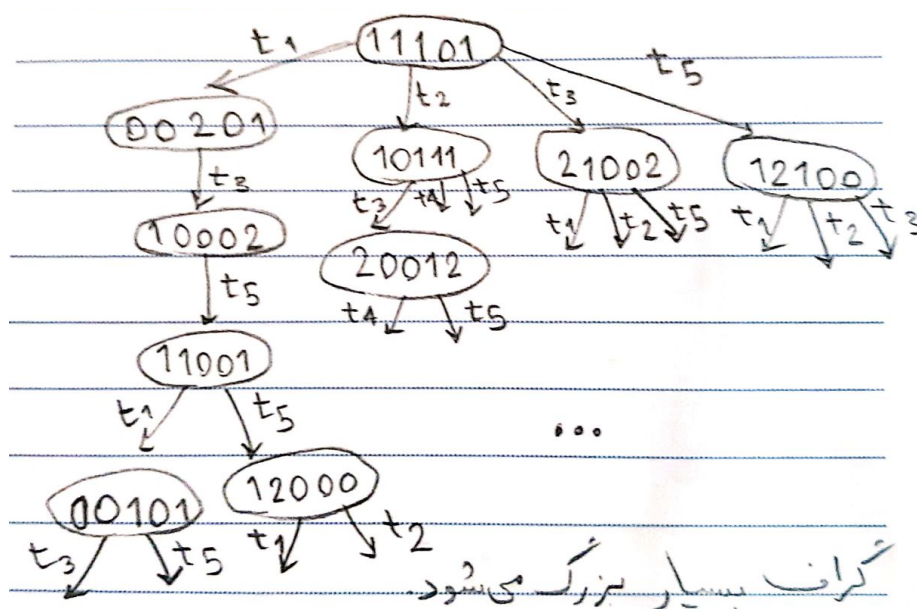 11101
t1 t2 t3 t5
00201 10111 21002 12100
t3 t3 t4 t5 t1 t2 t5 t1 t2 t3
10002 20012
t5 t4 t5
11001
t1 t5 ...
00101 12000
t3 t5 t1 t2
گراف بسیار بزرگ می‌شود.